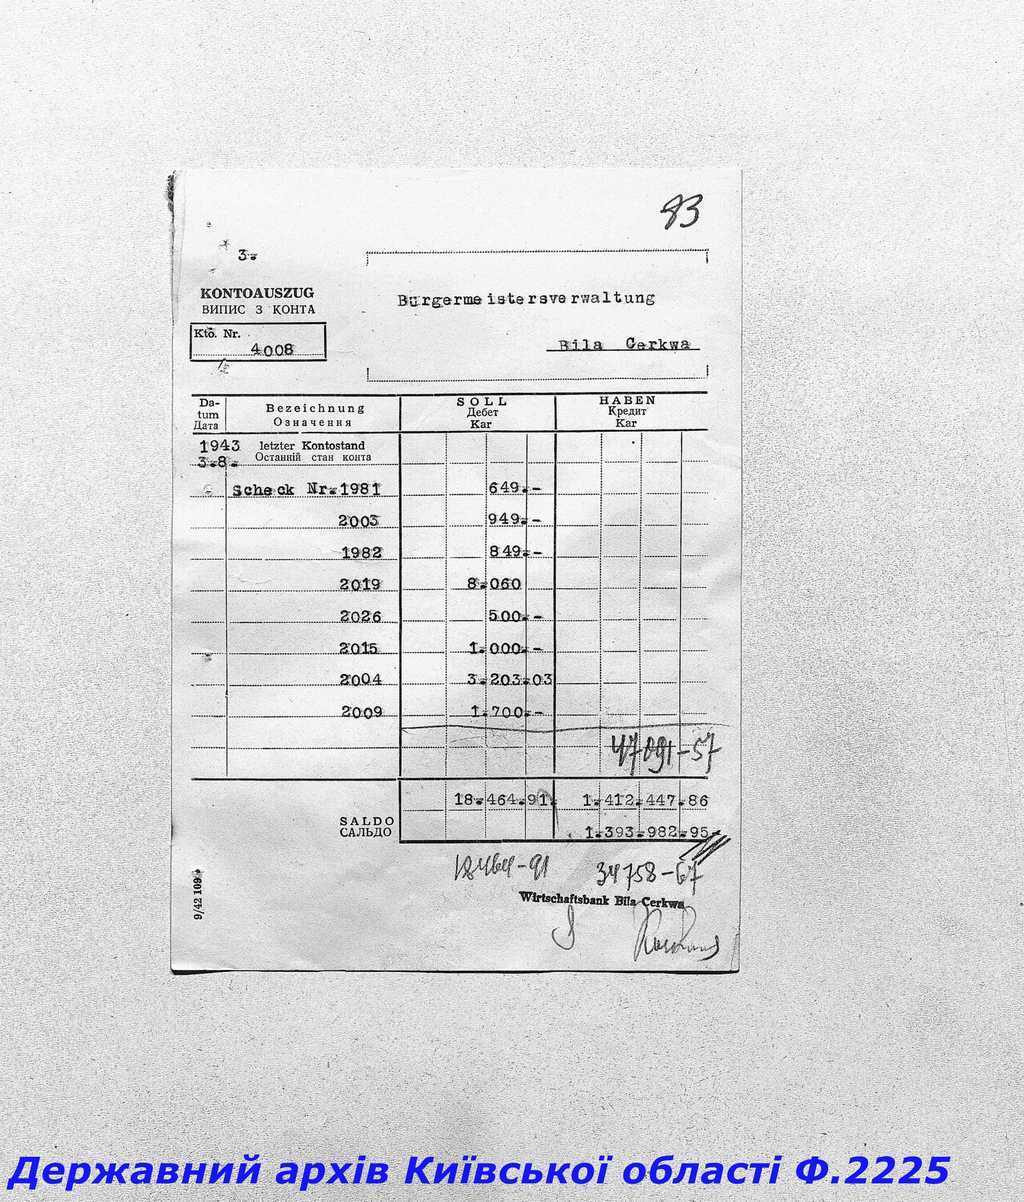 83
3.-
KONTOAUSZUG
ВИПИС З КОНТА
Kto. Nr.
4008
Burgermeistersverwaltung
Bila Cerkwa
Da-
tum
Дата
Bezeichnung
Означення
SOLL
Дебет
Kar
HABEN
Кредит
Kar
1943
3.8.
letzter Kontostand
Останній стан конта
Scheck Nr.1981 649.-
2003 949.-
1982 849.-
2019 8.060
2026 500.-
2015 1.000.-
2004 3.203.03
2009 1.700.-
47091-57
18.464.91 1.412.447.86
SALDO
САЛЬДО
1.393.982.95
18464-91 34758-67
Wirtschaftsbank Bila Cerkwa
9/42 109
Державний архів Київської області Ф.2225